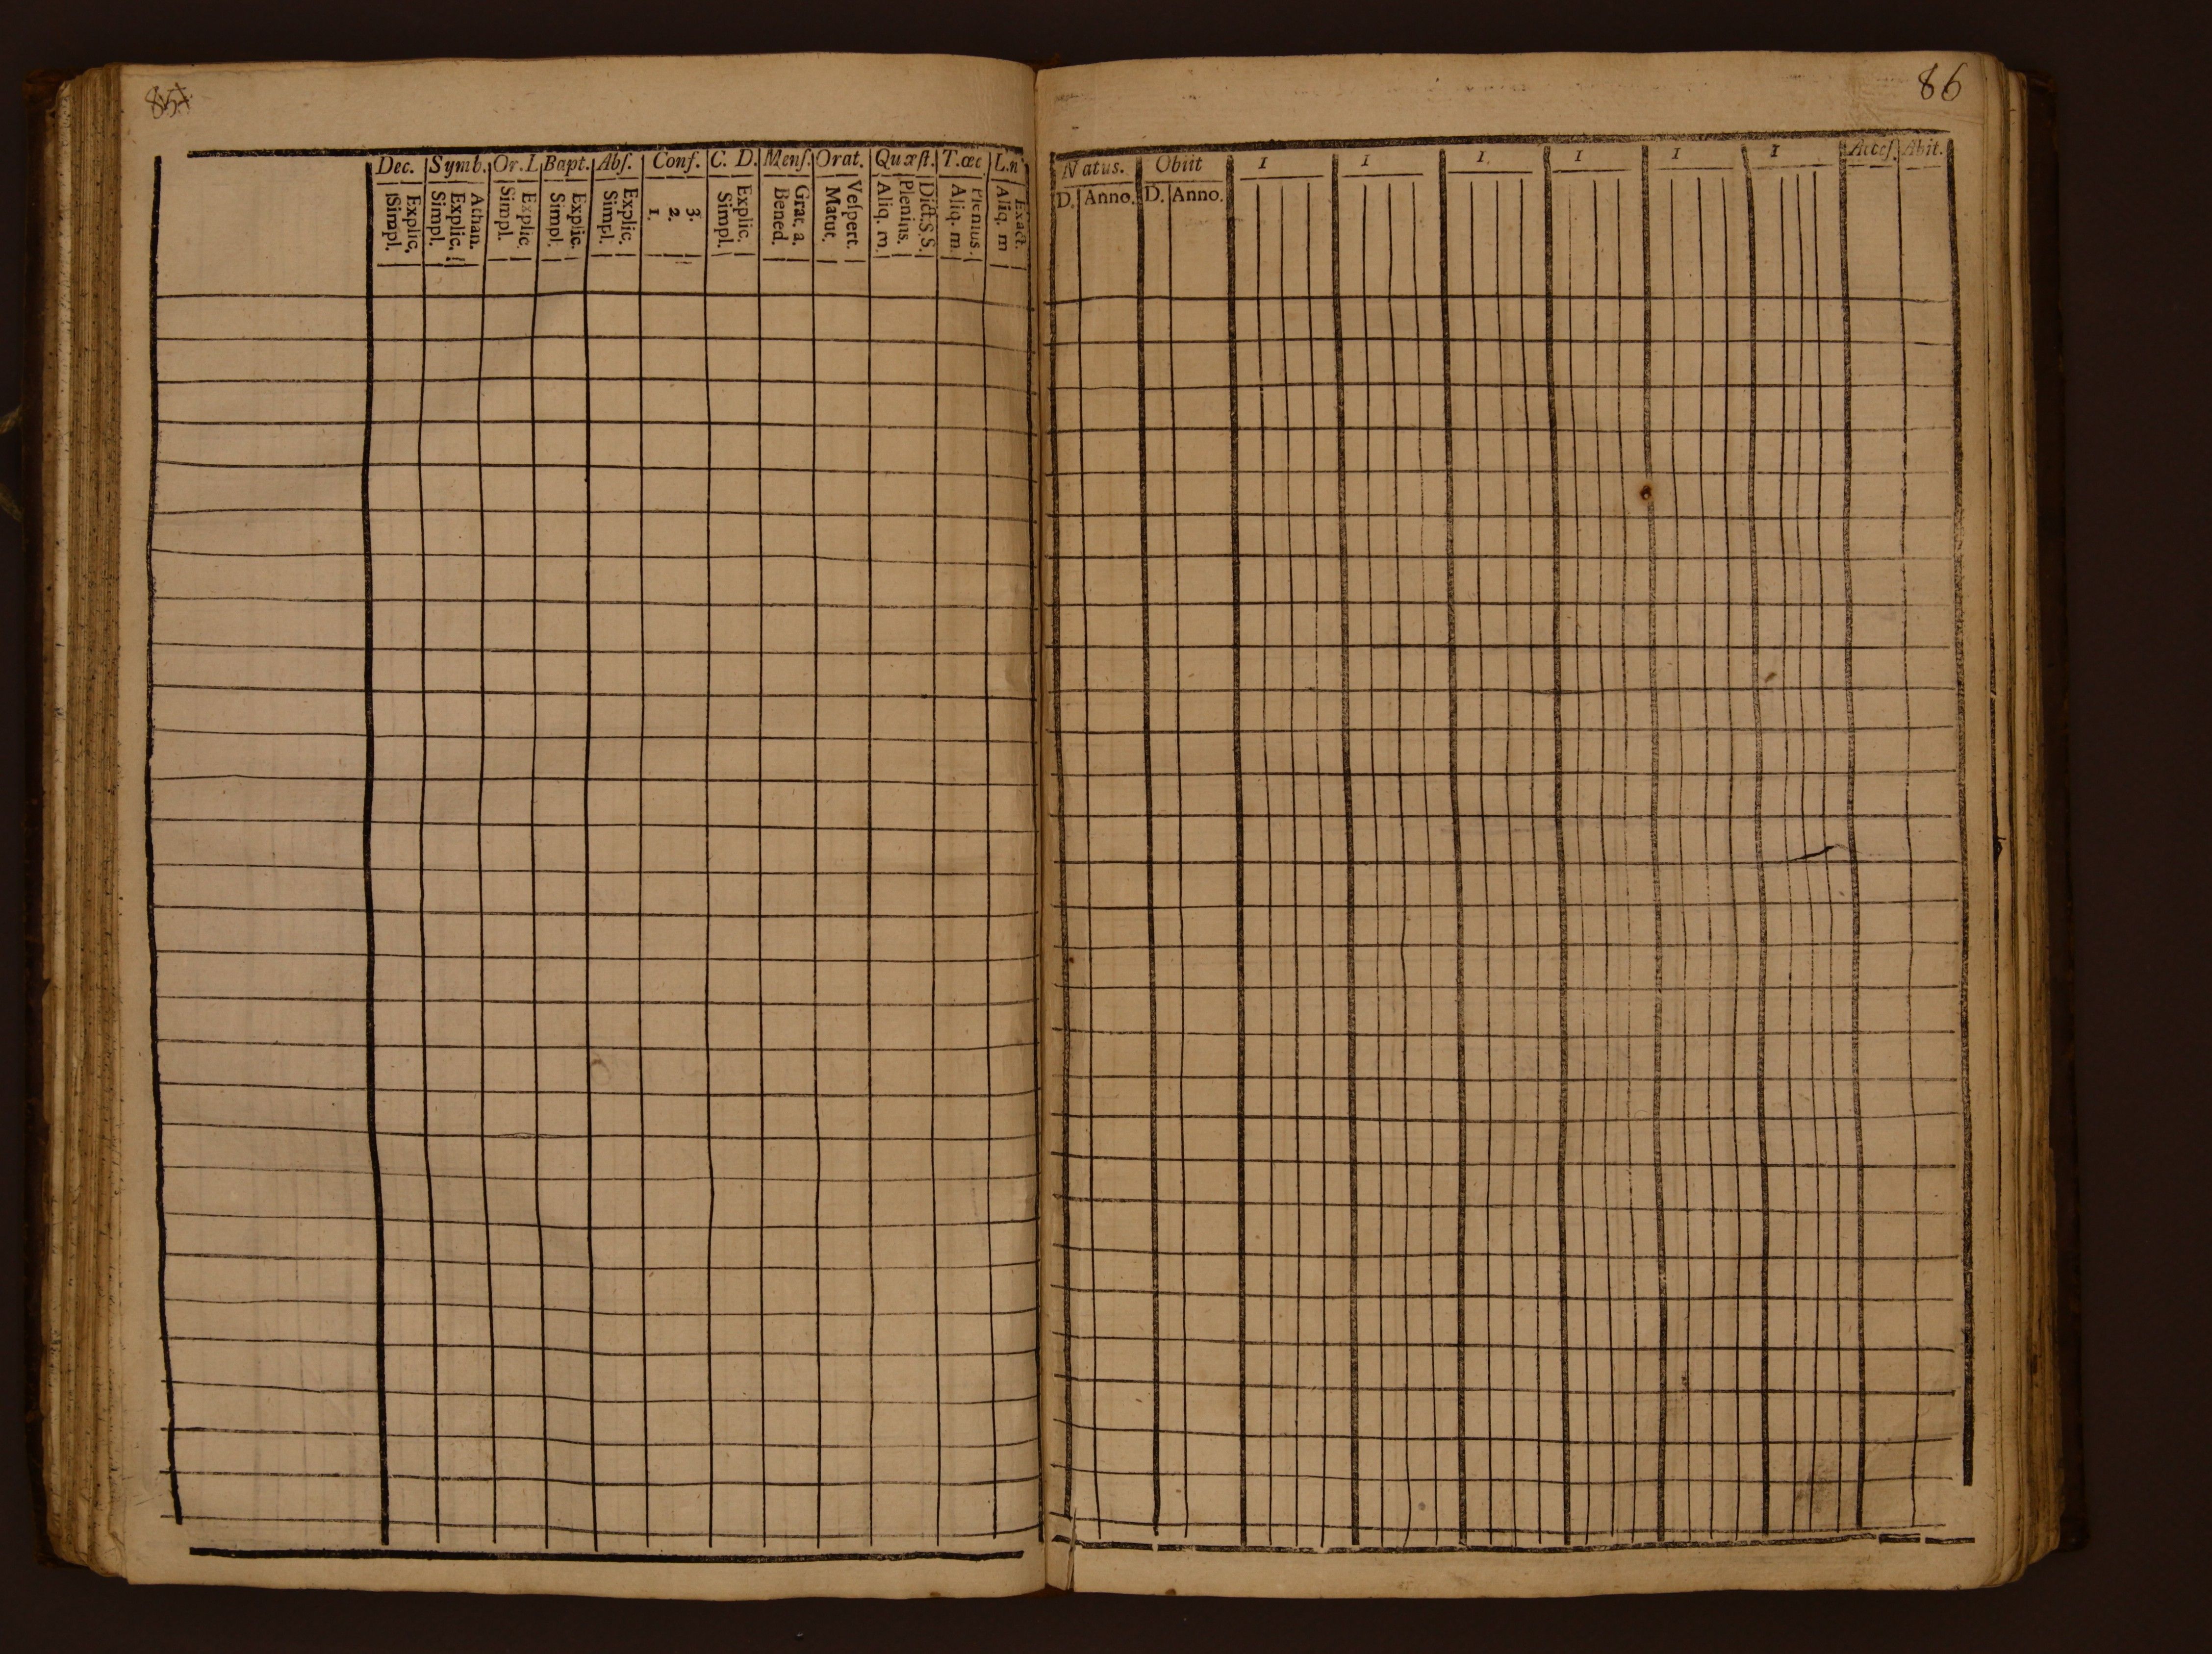 85
Dec. Symb. Or. L Bapt. Abſ. Conf. C. D. Menſ. Orat. Quæſt. T. œc L. n
Simpl. Explic.
Simpl. Explic. Athan.
Simpl. Explic.
Simpl. Explic.
Simpl. Explic.
1. 2. 3.
Simpl. Explic.
Bened. Grat. a.
Matut. Veſpert.
Aliq. m. Plenius. Dict. S. S.
Aliq. m. Plenius.
Aliq. m Exact.
86
Natus. Obiit 1 1 1 1 1 1 Acceſ. Abit.
D. Anno. D. Anno.